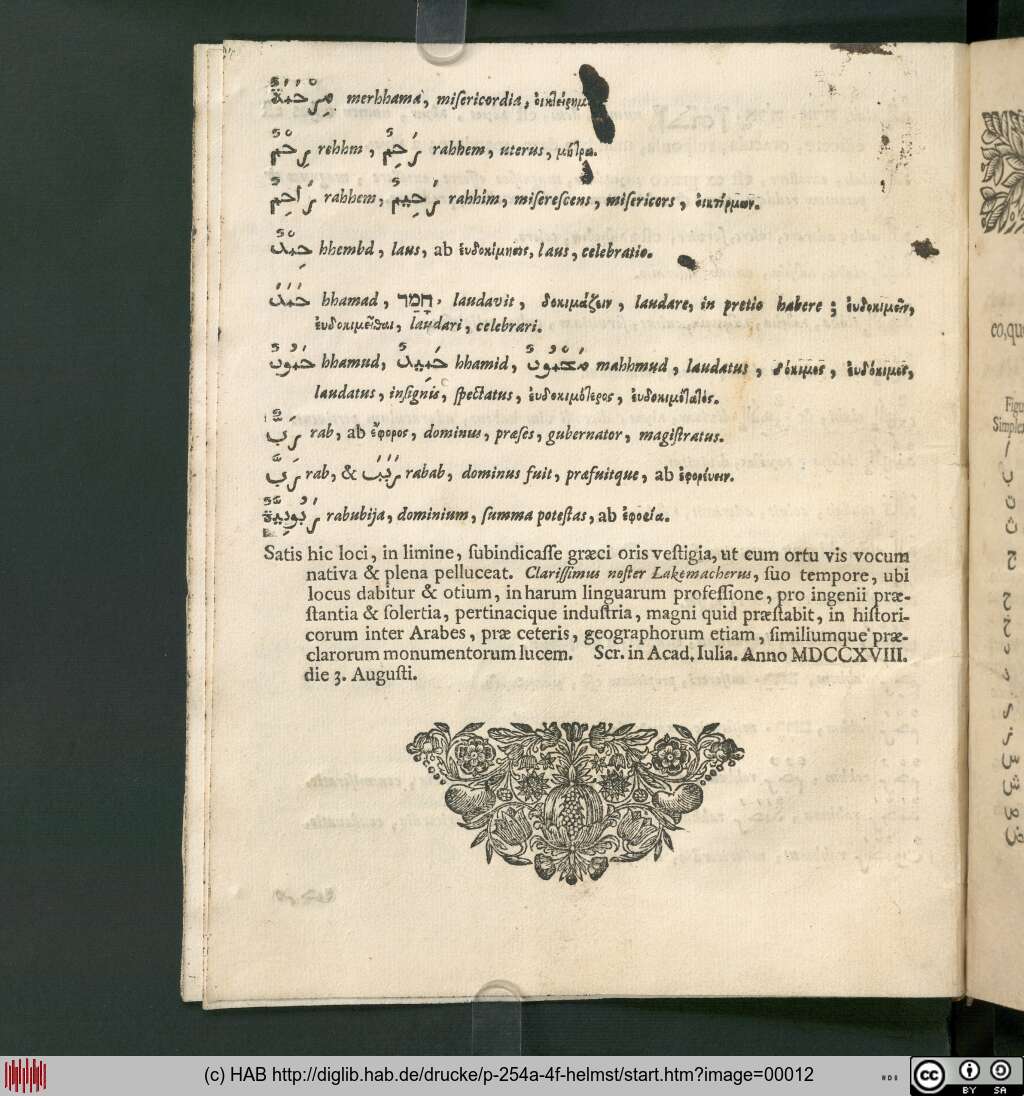 مَرْحَمَةٌ merhhama, misericordia,
رِحْمٌ rehhm, رَحِمٌ rahhem, uterus, μήτρα.
رَاحِمٌ rahhem, رَحِيمٌ rahhim, miserescens, misericors, οἰκτίρμων.
حِمْدٌ hhembd, laus, ab ἐυδοκίμησις, laus, celebratio.
حَمَدَ hhamad, חָמַד, laudavit, δοκιμάζειν, laudare, in pretio habere; ἐυδοκιμεῖν,
ἐυδοκιμεῖσθαι, laudari, celebrari.
حَمُودٌ hhamud, حَمِيدٌ hhamid, مَحْمُودٌ mahhmud, laudatus, δόκιμος, ἐυδόκιμος,
laudatus, insignis, spectatus, ἐυδοκιμώτερος, ἐυδοκιμώτατος.
رَبٌّ rab, ab ἔφορος, dominus, præses, gubernator, magistratus.
رَبَّ rab, & رَبَبَ rabab, dominus fuit, præfuitque, ab ἐφορέυειν.
رَبُوبِيَّةٌ rabubija, dominium, summa potestas, ab ἐφορεία.
Satis hic loci, in limine, subindicasse græci oris vestigia, ut cum ortu vis vocum
nativa & plena pelluceat. Clarissimus noster Lakemacherus, suo tempore, ubi
locus dabitur & otium, in harum linguarum professione, pro ingenii præ-
stantia & solertia, pertinacique industria, magni quid præstabit, in histori-
corum inter Arabes, præ ceteris, geographorum etiam, similiumque præ-
clarorum monumentorum lucem. Scr. in Acad. Iulia. Anno MDCCXVIII.
die 3. Augusti.
eo, qu
Figu
Simplex
(c) HAB http://diglib.hab.de/drucke/p-254a-4f-helmst/start.htm?image=00012
HAB
cc BY SA